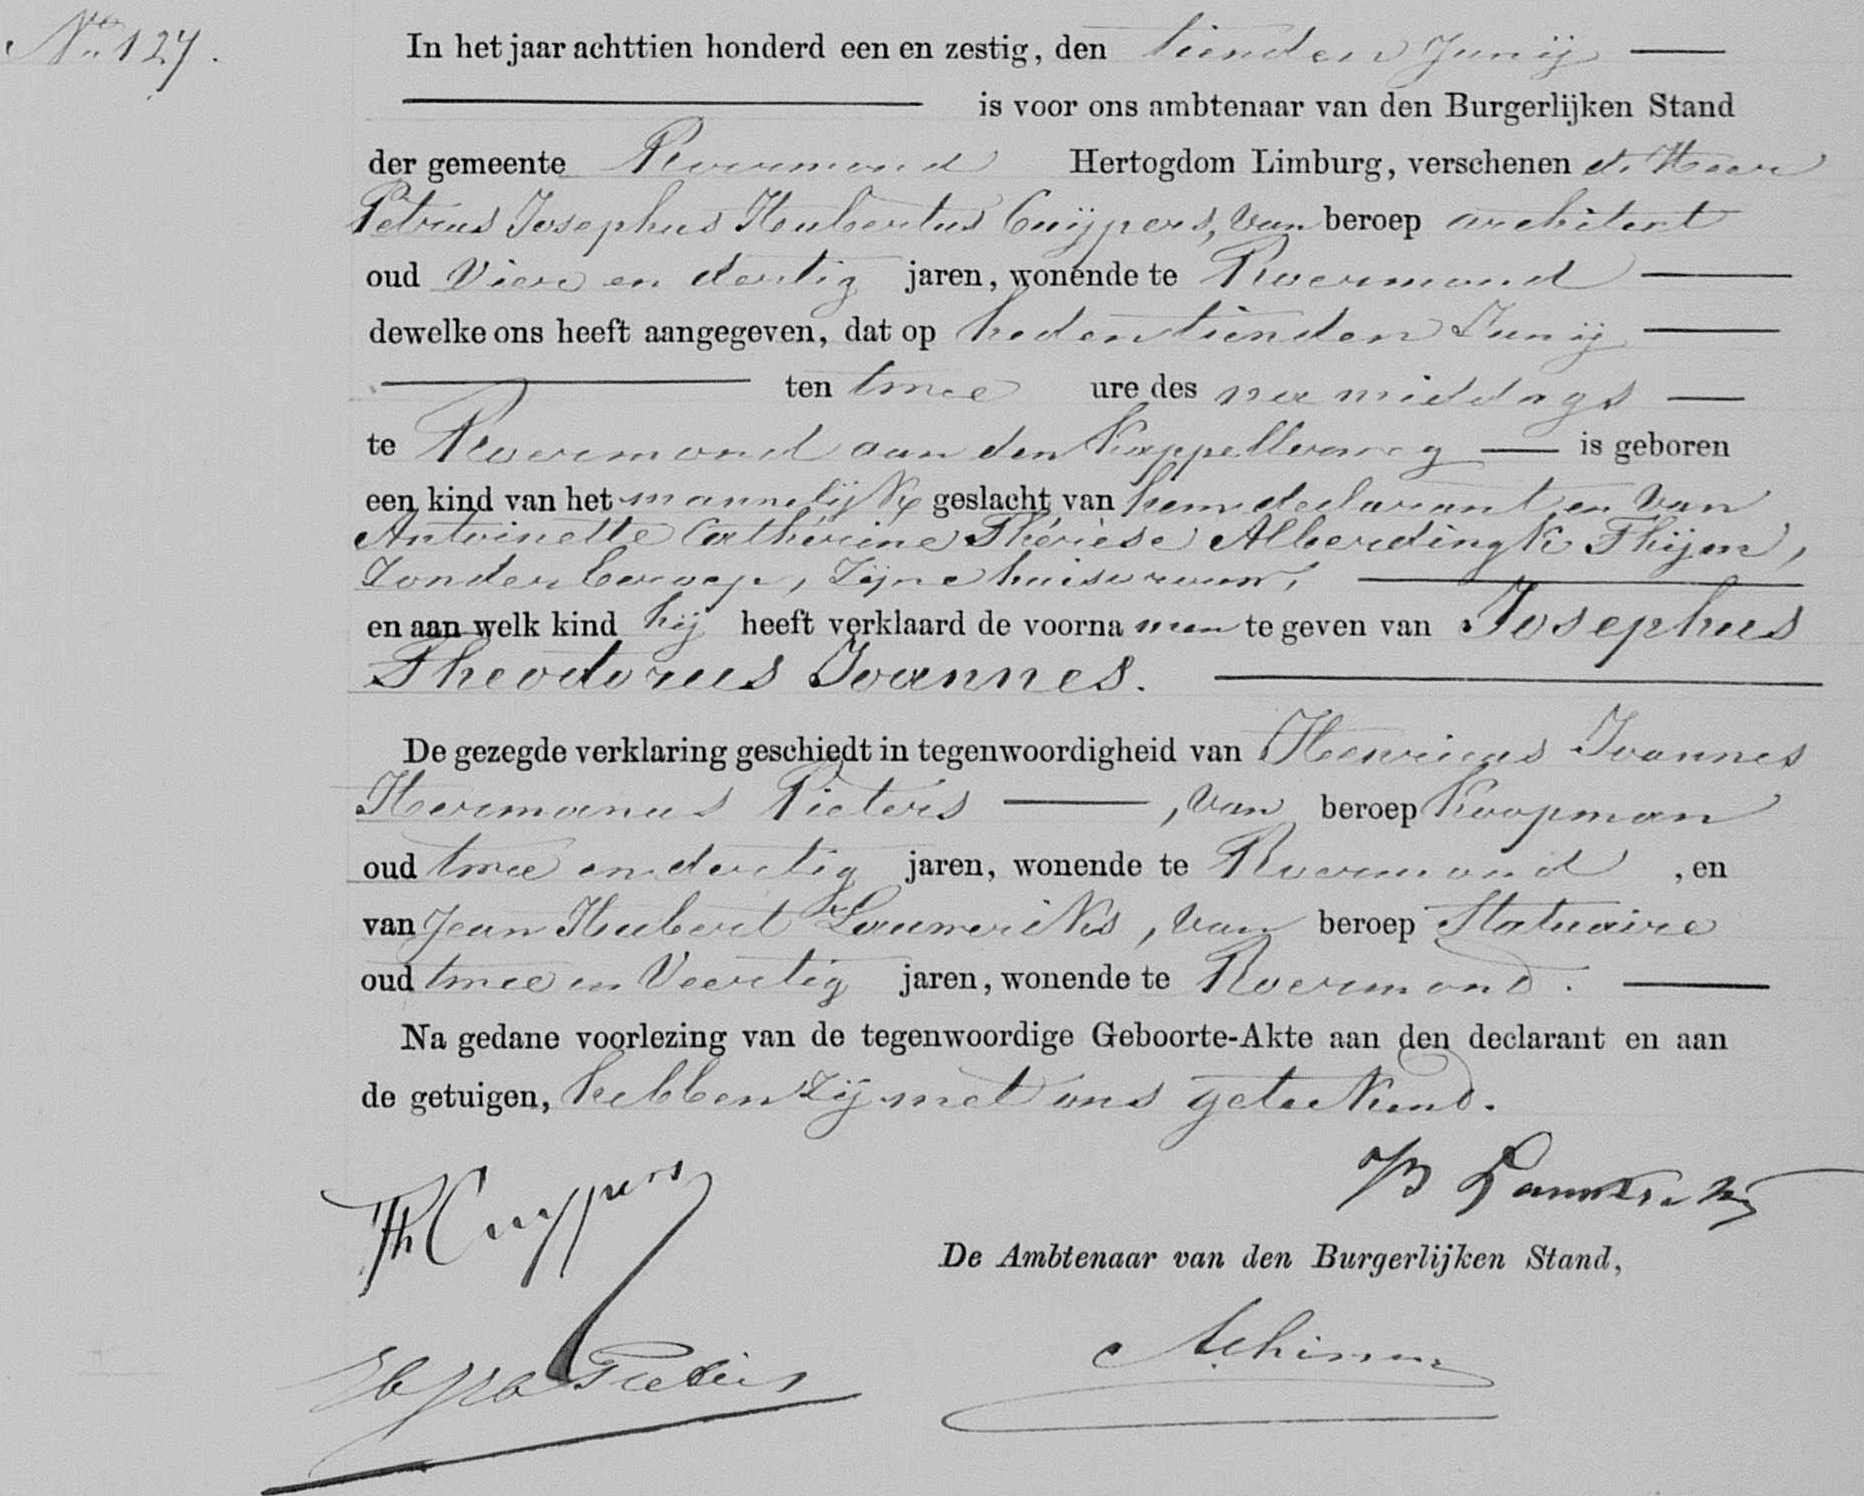 No 127.
In het jaar achttien honderd een en zestig, den tienden Junij
is voor ons ambtenaar van den Burgerlijken Stand
der gemeente Roermond Hertogdom Limburg, verschenen de Heer
Petrus Josephus Hubertus Cuijpers, van beroep architect
oud Vier en dertig jaren, wonende te Roermond
dewelke ons heeft aangegeven, dat op heden tienden Junij
ten twee ure des na middags
te Roermond aan den Kappellerweg is geboren
een kind van het mannelijk geslacht van hem declarant en van
Antoinette Cathérine Thérèse Alberdingk Thijm,
Zonder beroep, Zijne huisvrouw,
en aan welk kind hij heeft verklaard de voornamen te geven van Josephus
Theodorus Joannes.
De gezegde verklaring geschiedt in tegenwoordigheid van Henricus Joannes
Hermanus Pieters, van beroep Koopman
oud twee en dertig jaren, wonende te Roermond, en
van Jean Hubert Lauweriks, van beroep Statuaire
oud twee en Veertig jaren, wonende te Roermond.
Na gedane voorlezing van de tegenwoordige Geboorte-Akte aan den declarant en aan
de getuigen, hebben Zij met ons geteekend.
Cuypers
Lauweriks
De Ambtenaar van den Burgerlijken Stand,
Pieters